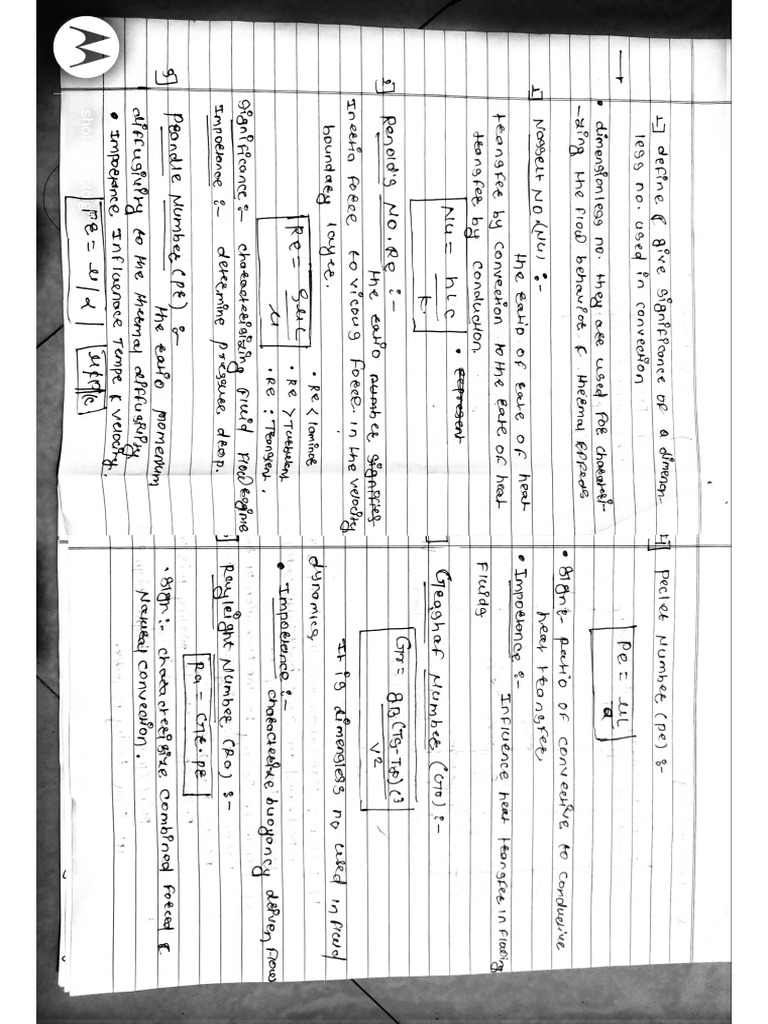 1] define & give significance of a dimenson-
less no. used in convection
• dimensionless no. they are used for charatei-
-zing the flow behavior & thermal effects
1] Nosselt NO (NU) :-
the ratio of rate of heat
transfer by convection to the rate of heat
transfer by conduction.
NU = hLC / k
• represent
2] Renolds NO. Re :-
the ratio number signifies
Inertia force to vicous force. in the velocity
boundary layer.
Re = ρuL / μ
• Re < laminar
• Re > Turbulent
• Re : Transient.
significance :- characterisizing fluid flow regime
Importance :- determine pressure drop.
3] Prandle Number (pr) :-
the ratio momentum
diffusivity to the thermal diffusivity
• Importance Influenace Tempr & velocity.
pr = ν/α
4] peclet Number (pe) :-
Pe = uL / α
• Signi- ratio of convective to conductive
heat transfer.
• Importance :- Influence heat transfer in flowing
Fluids
] Grashaf Number (Gr) :-
Gr = gB(Ts-T∞)L³ / V²
It is dimensless no used in fluid
dynamics
• Importance :- characterize buoyancy driven flow
] Rayleight Number (Ra) :-
Ra = Gr.pr
• sign :- characterisize combined forced &
Natural convection.